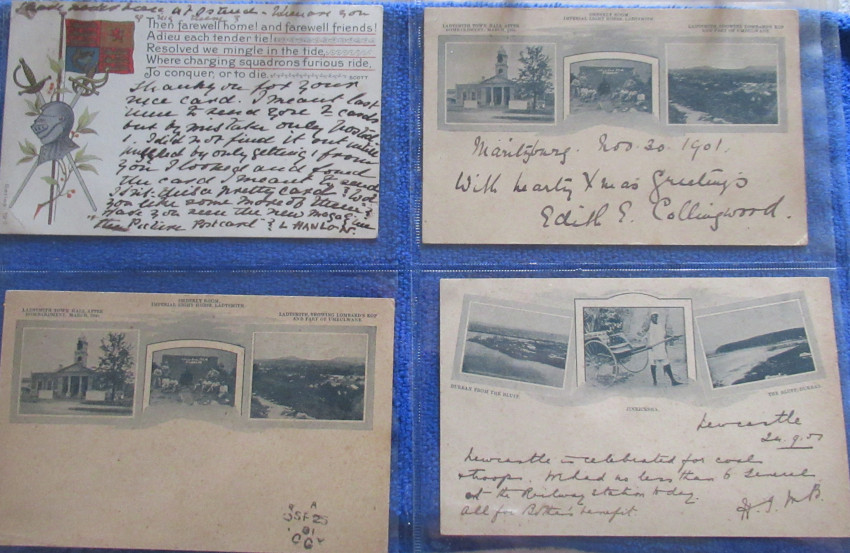 Then farewell home! and farewell friends!
Adieu each tender tie!
Resolved we mingle in the tide,
Where charging squadrons furious ride,
To conquer, or to die. SCOTT
Thank you for your
nice card. I meant last
time to send you 2 cards
but by mistake only posted
1. I did not find it out till
puzzled by only getting 1 from
you I looked and found
the card I meant to send
pretty card
you like some more of them?
Have you seen the new magazine
"the Picture Postcard"? L HANLON.
LADYSMITH TOWN HALL AFTER
BOMBARDMENT, MARCH, 1900.
ORDERLY ROOM,
IMPERIAL LIGHT HORSE, LADYSMITH.
LADYSMITH SHOWING LOMBARD'S KOP
AND PART OF UMBULWANE
Maritzburg. Nov. 30. 1901.
With hearty Xmas Greetings
Edith E. Collingwood.
LADYSMITH TOWN HALL AFTER
BOMBARDMENT, MARCH, 1900.
ORDERLY ROOM,
IMPERIAL LIGHT HORSE, LADYSMITH.
LADYSMITH SHOWING LOMBARD'S KOP
AND PART OF UMBULWANE
A
SE 25
01
DURBAN FROM THE BLUFF
THE BLUFF, DURBAN
Newcastle
Newcastle is celebrated for coal
& troops. We had no less than 6 Generals
at the Railway Station to day
all for Botha's benefit.